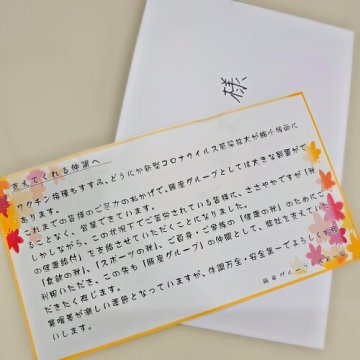 様
支えてくれる仲間へ
ワクチン接種もすすみ、どうにか新型コロナウイルス感染拡大が縮小傾向に
あります。
これまでの皆様のご尽力のおかげで、豚座グループとしては大きな影響がで
ることなく、営業できています。
しかしながら、この状況下でご苦労されている皆様に、ささやかですが「秋
の健康給付」を支給させていただくことになりました。
「食欲の秋」、「スポーツの秋」、ご自身・ご家族の「健康の秋」のために
利用いただき、この先も「豚座グループ」の仲間として、弊社を支えていた
だきたく存じます。
寒暖差が激しい季節となっていますが、体調万全・安全第一でよろしくお願
いします。
豚座グループ